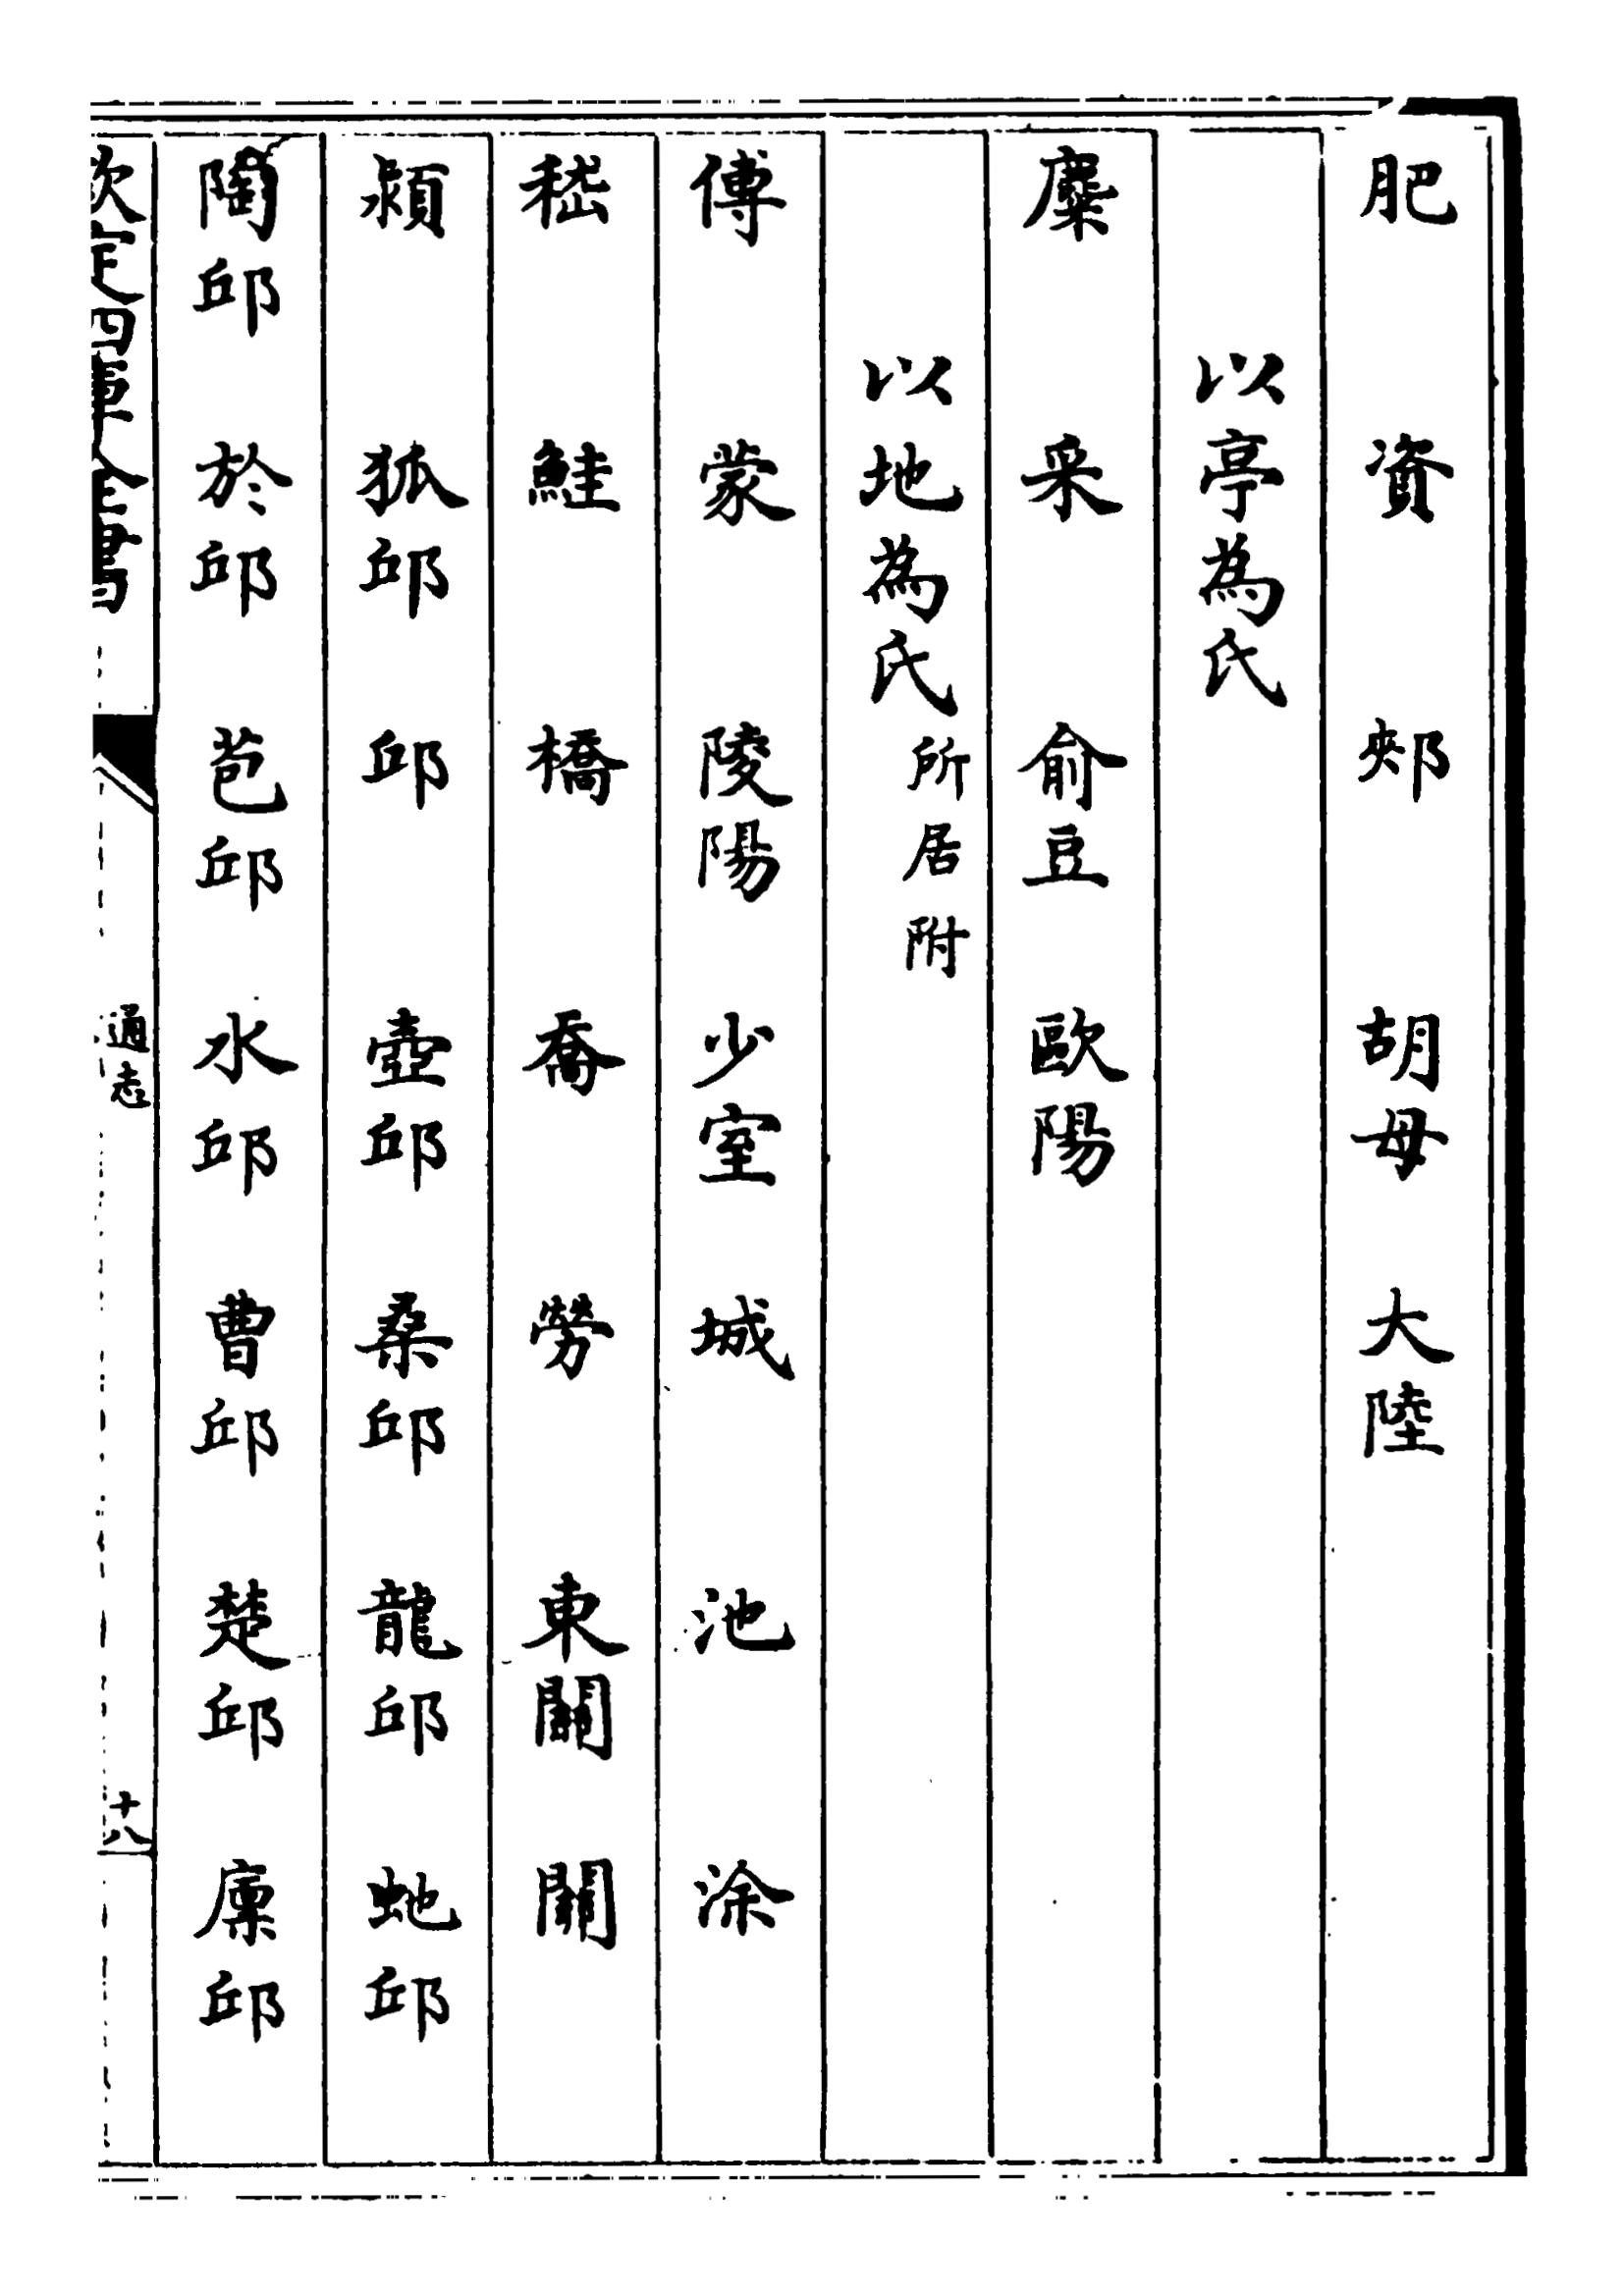 肥　資　郟　胡母　大陸
以亭為氏
麋　采　俞豆　歐陽
以地為氏所居附
傅　蒙　陵陽　少室　城　池　涂
嵇　鮭　橋　喬　勞　東關　關
潁　狐邱　邱　壺邱　桑邱　龍邱　虵邱
陶邱　於邱　苞邱　水邱　曹邱　楚邱　廩邱
欽定四庫全書　通志　十八